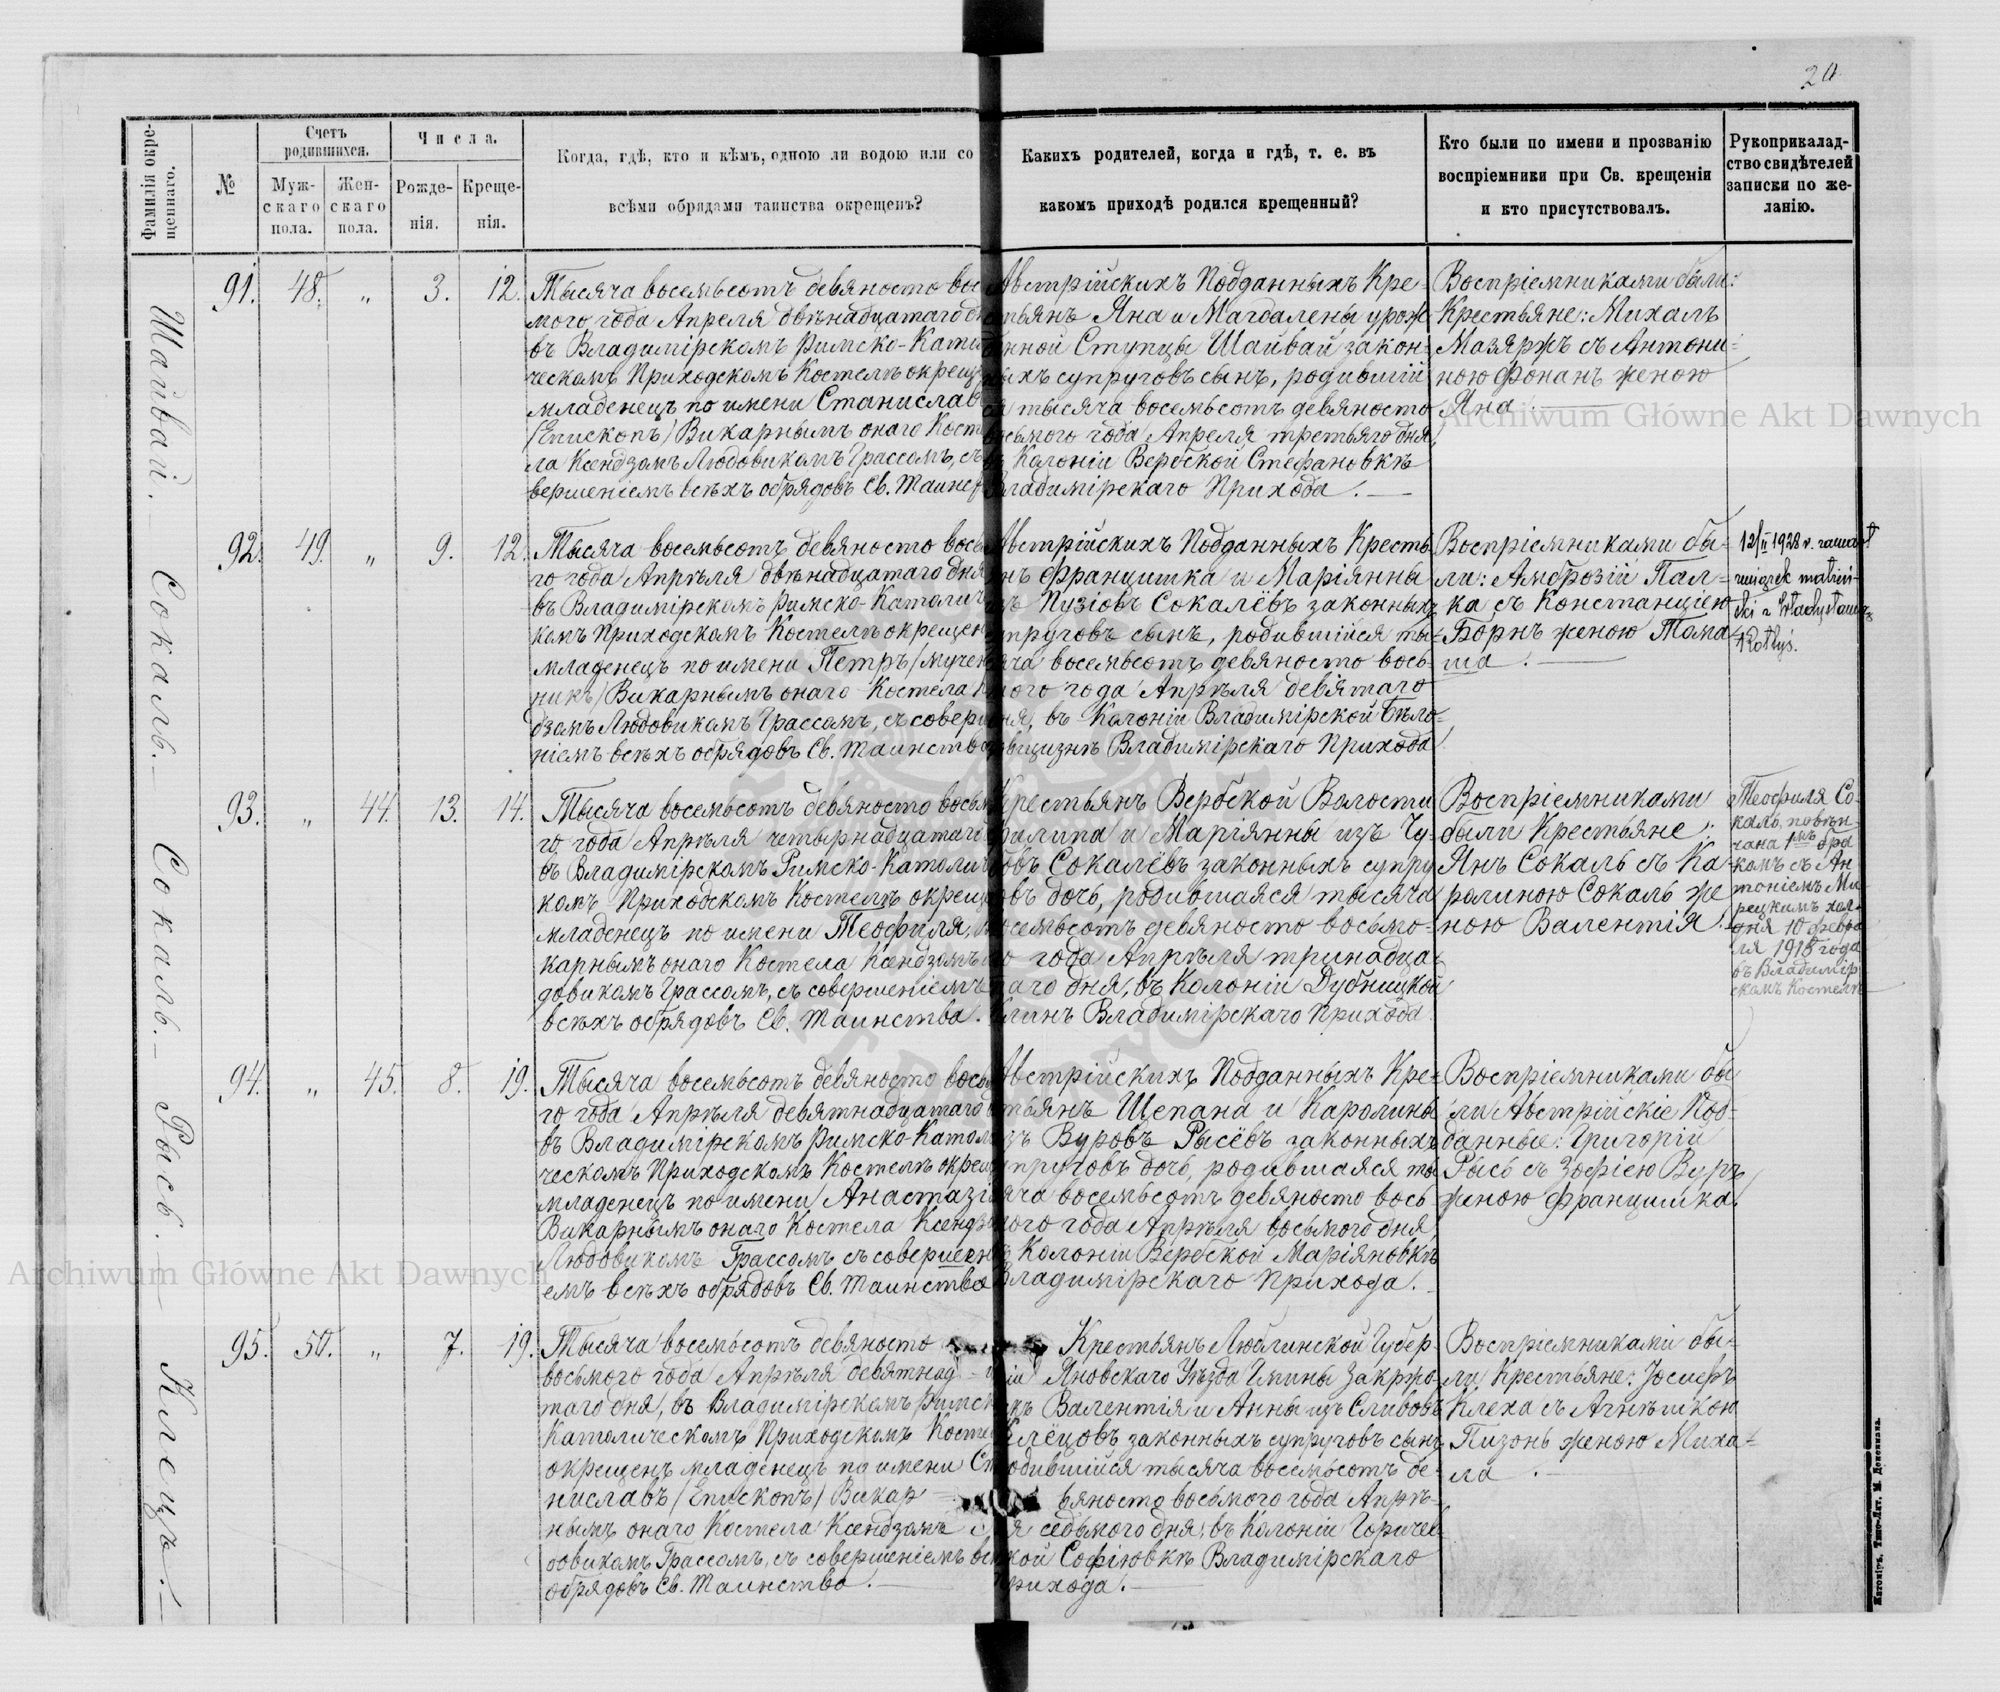 20
Фамилія окре-
щеннаго.
№
Счетъ
родившихся.
Муж-
скаго
пола.
Жен-
скаго
пола.
Числа.
Рожде-
нія.
Креще-
нія.
Когда, гдѣ, кто и кѣмъ, одною ли водою или со
всѣми обрядами таинства окрещенъ?
Какихъ родителей, когда и гдѣ, т. е. въ
какомъ приходѣ родился крещенный?
Кто были по имени и прозванію
воспріемники при Св. крещеніи
и кто присутствовалъ.
Рукоприкалад-
ство свидѣтелей
записки по же-
ланію.
Шайвай.
91. 48. " 3. 12.
Тысяча восемьсотъ девяносто вос
мого года Апреля двѣнадцатаго дн
въ Владимірскомъ Римско-Като
ческомъ Приходскомъ Костелѣ окрещ
младенецъ по имени Станислав
/Епископъ/ Викарнымъ онаго Косте
ла Ксендзомъ Людовикомъ Грассомъ, съ
вершеніемъ всѣхъ обрядовъ Св. Таинст
Австрійскихъ Подданныхъ Кре-
стьянъ Яна и Магдалены урож-
денной Ступцы Шайвай закон-
ныхъ супруговъ сынъ, родившій
ся тысяча восемьсотъ девяносто
восьмого года Апреля третьяго дня
въ Колоніи Вербской Стефановкѣ
Владимірскаго Прихода.
Воспріемниками были:
Крестьяне: Михалъ
Мазяржъ съ Антони-
ною Фонанъ женою
Яна.
Сокаль.
92. 49. " 9. 12.
Тысяча восемьсотъ девяносто вось
го года Апрѣля двѣнадцатаго дня
въ Владимірскомъ Римско-Католич
комъ Приходскомъ Костелѣ окрещен
младенецъ по имени Петръ /мучен
никъ/ Викарнымъ онаго Костела К
дзомъ Людовикомъ Грассомъ, съ совер
ніемъ всѣхъ обрядовъ Св. Таинства
Австрійскихъ Подданныхъ Кресть
янъ Францишка и Маріянны
изъ Пузіовъ Сокалёвъ законныхъ
супруговъ сынъ, родившійся ты-
сяча восемьсотъ девяносто вось-
мого года Апрѣля девятаго
дня, въ Колоніи Владимірской Бѣло-
вицизнѣ Владимірскаго Прихода
Воспріемниками бы-
ли: Амброзій Пал-
ка съ Констанціею
Борнъ женою Тома-
ша.
12/II 1928 r. zawarł
związek małżeń-
ski z Władysławą
Kołtyś.
Сокаль.
93. " 44. 13. 14.
Тысяча восемьсотъ девяносто восьм
го года Апрѣля четырнадцатаго
въ Владимірскомъ Римско-Католич
комъ Приходскомъ Костелѣ окрещ
младенецъ по имени Теофиля,
карнымъ онаго Костела Ксендзомъ
довикомъ Грассомъ, съ совершеніемъ
всѣхъ обрядовъ Св. Таинства.
Крестьянъ Вербской Волости
Филипа и Маріянны изъ Чу-
бовъ Сокалёвъ законныхъ супру
говъ дочь, родившаяся тысяча
восемьсотъ девяносто восьмо-
го года Апрѣля тринадца-
таго дня, въ Колоніи Дубницкой
Глинъ Владимірскаго Прихода
Воспріемниками
были Крестьяне:
Янъ Сокаль съ Ка-
ролиною Сокаль же
ною Валентія.
Теофиля Со-
каль, повѣн-
чана 1мъ бра
комъ съ Ан
тоніемъ
дня 10 февра
ля 1918 года
въ Владимір
скомъ Костелѣ
Рысь.
94. " 45. 8. 19.
Тысяча восемьсотъ девяносто вось
го года Апрѣля девятнадцатаго
въ Владимірскомъ Римско-Катол
ческомъ Приходскомъ Костелѣ окрещ
младенецъ по имени Анастазі
Викарнымъ онаго Костела Ксендз
Людовикомъ Грассомъ съ совершен
емъ всѣхъ обрядовъ Св. Таинства
Австрійскихъ Подданныхъ Кре-
стьянъ Щепана и Каролины
изъ Вуровъ Рысёвъ законныхъ
супруговъ дочь, родившаяся ты
сяча восемьсотъ девяносто вось
мого года Апрѣля восьмого дня,
въ Колоніи Вербской Маріяновкѣ
Владимірскаго Прихода.
Воспріемниками бы
ли Австрійскіе Под-
данные: Григорій
Рысь съ Зофіею Вуръ
женою Францишка.
Клецъ.
95. 50. " 7. 19.
Тысяча восемьсотъ девяносто
восьмого года Апрѣля девятнад-
таго дня, въ Владимірскомъ Римск
Католическомъ Приходскомъ Косте
окрещенъ младенецъ по имени Ст
ниславъ /Епископъ/ Викар
нымъ онаго Костела Ксендзомъ
довикомъ Грассомъ, съ совершеніемъ всѣ
обрядовъ Св. Таинства.
Крестьянъ Люблинской Губер-
ніи Яновскаго Уѣзда Гмины Закржо
векъ Валентія и Анны изъ Сливовъ
Клёцовъ законныхъ супруговъ сынъ
родившійся тысяча восемьсотъ де-
вяносто восьмого года Апрѣ-
ля седьмого дня, въ Колоніи Горичев
ской Софіювкѣ Владимірскаго
Прихода.
Воспріемниками бы-
ли Крестьяне: Іосифъ
Клеха съ Агнѣшкою
Пизонь женою Миха-
ла.
Житоміръ, Типо-Лит. М. Дененмана.
Archiwum Główne Akt Dawnych
Archiwum Główne Akt Dawnych